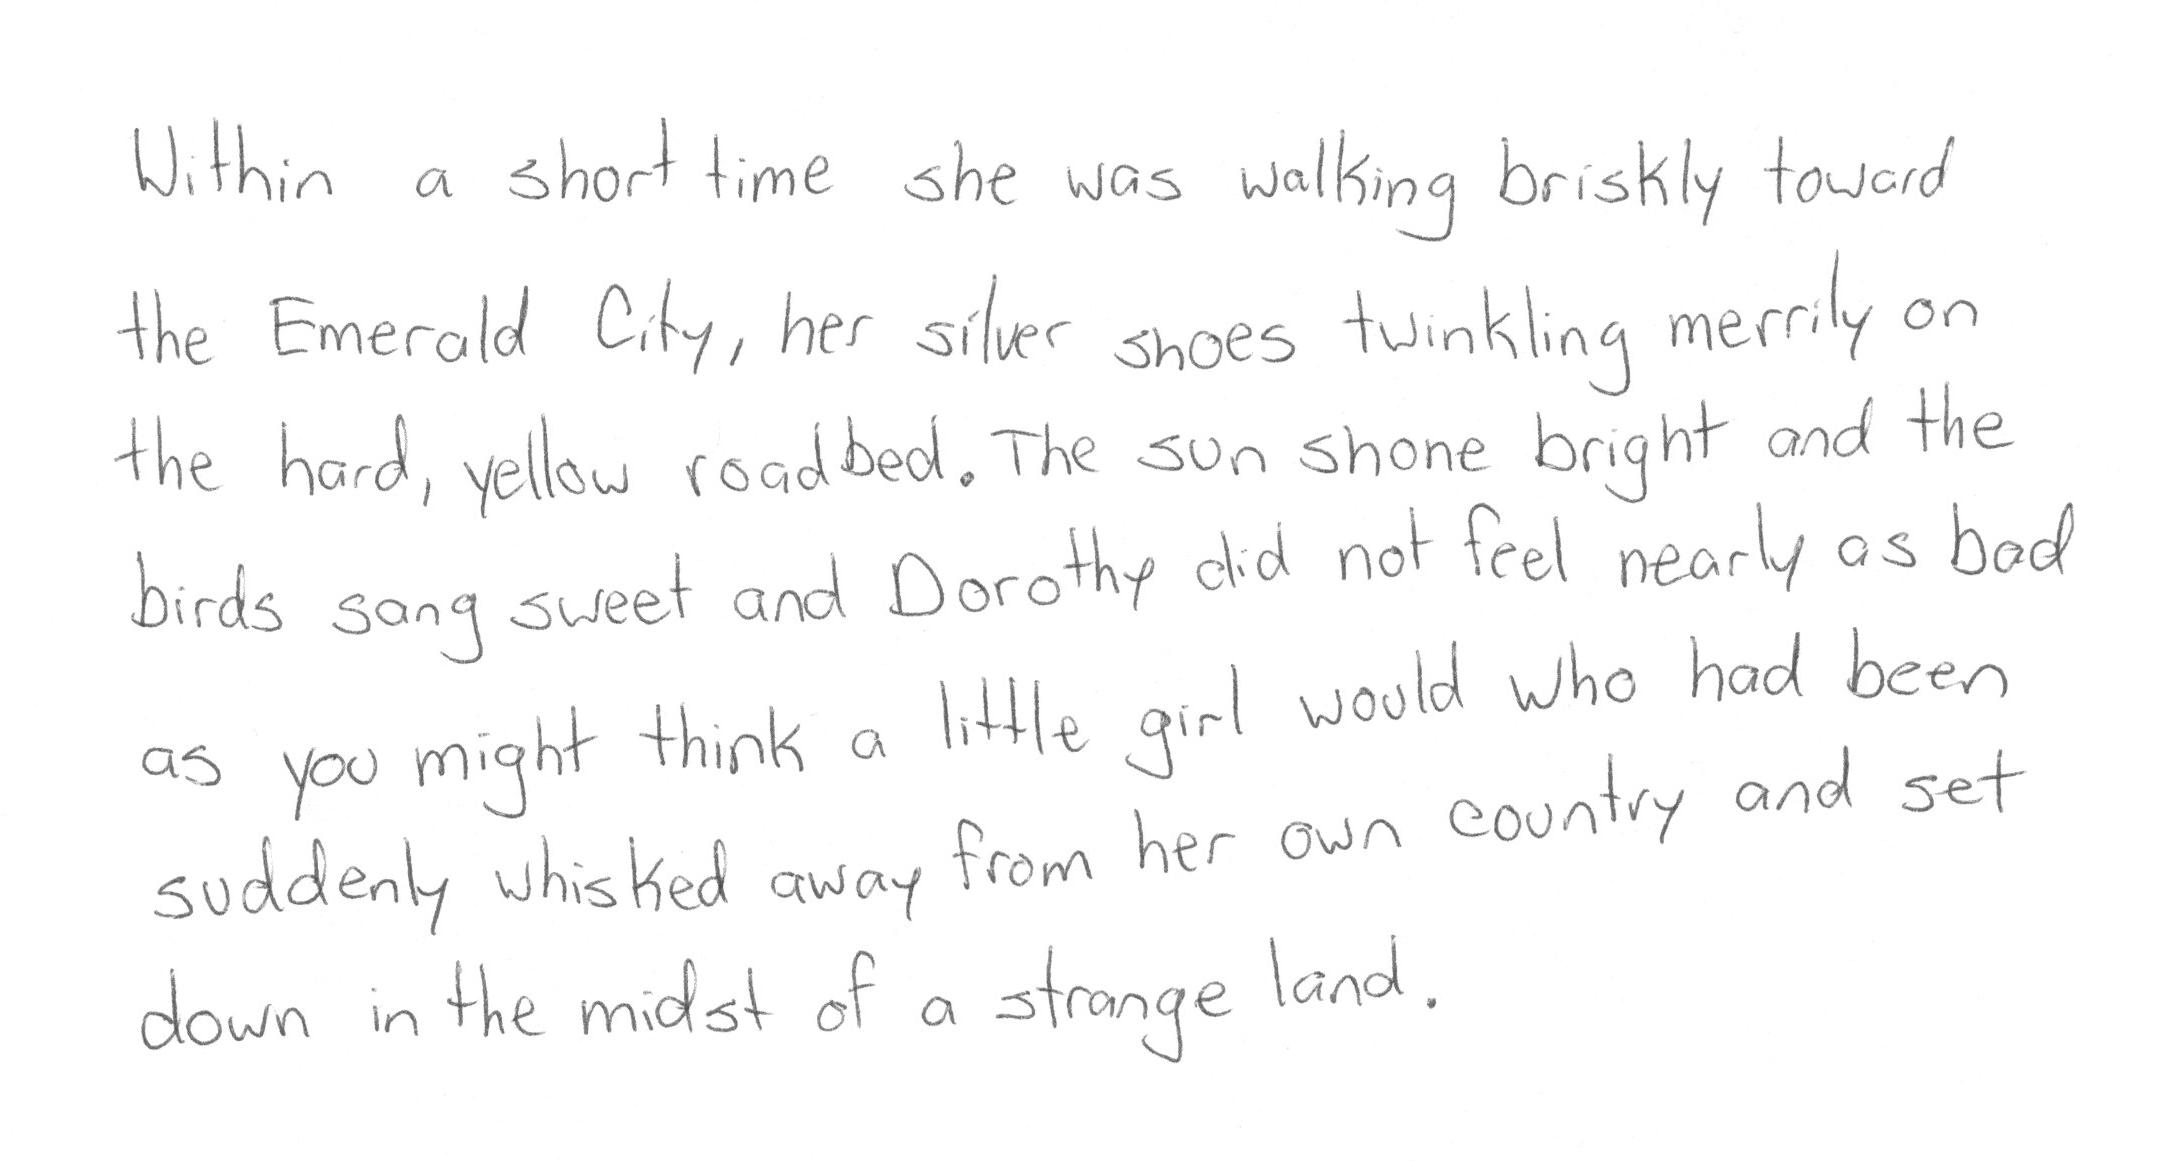 Within a short time she was walking briskly toward
the Emerald City, her silver shoes twinkling merrily on
the hard, yellow roadbed. The sun shone bright and the
birds sang sweet and Dorothy did not feel nearly as bad
as you might think a little girl would who had been
suddenly whisked away from her own country and set
down in the midst of a strange land.